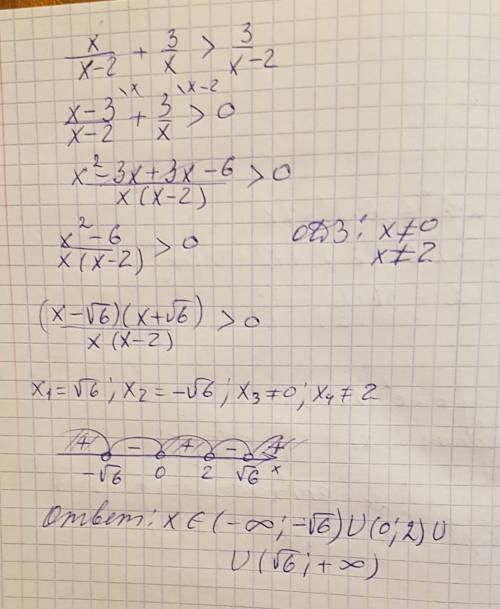 x/(x-2) + 3/x > 3/(x-2)
(x-3)/(x-2) \x + 3/x \x-2 > 0
(x²-3x+3x-6)/(x(x-2)) > 0
(x²-6)/(x(x-2)) > 0
ОДЗ: x≠0
x≠2
((x-√6)(x+√6))/(x(x-2)) > 0
x₁=√6; x₂=-√6; x₃≠0; x₄≠2
+ - + - +
-√6 0 2 √6 x
Ответ: x∈(-∞;-√6)∪(0;2)∪
∪(√6;+∞)